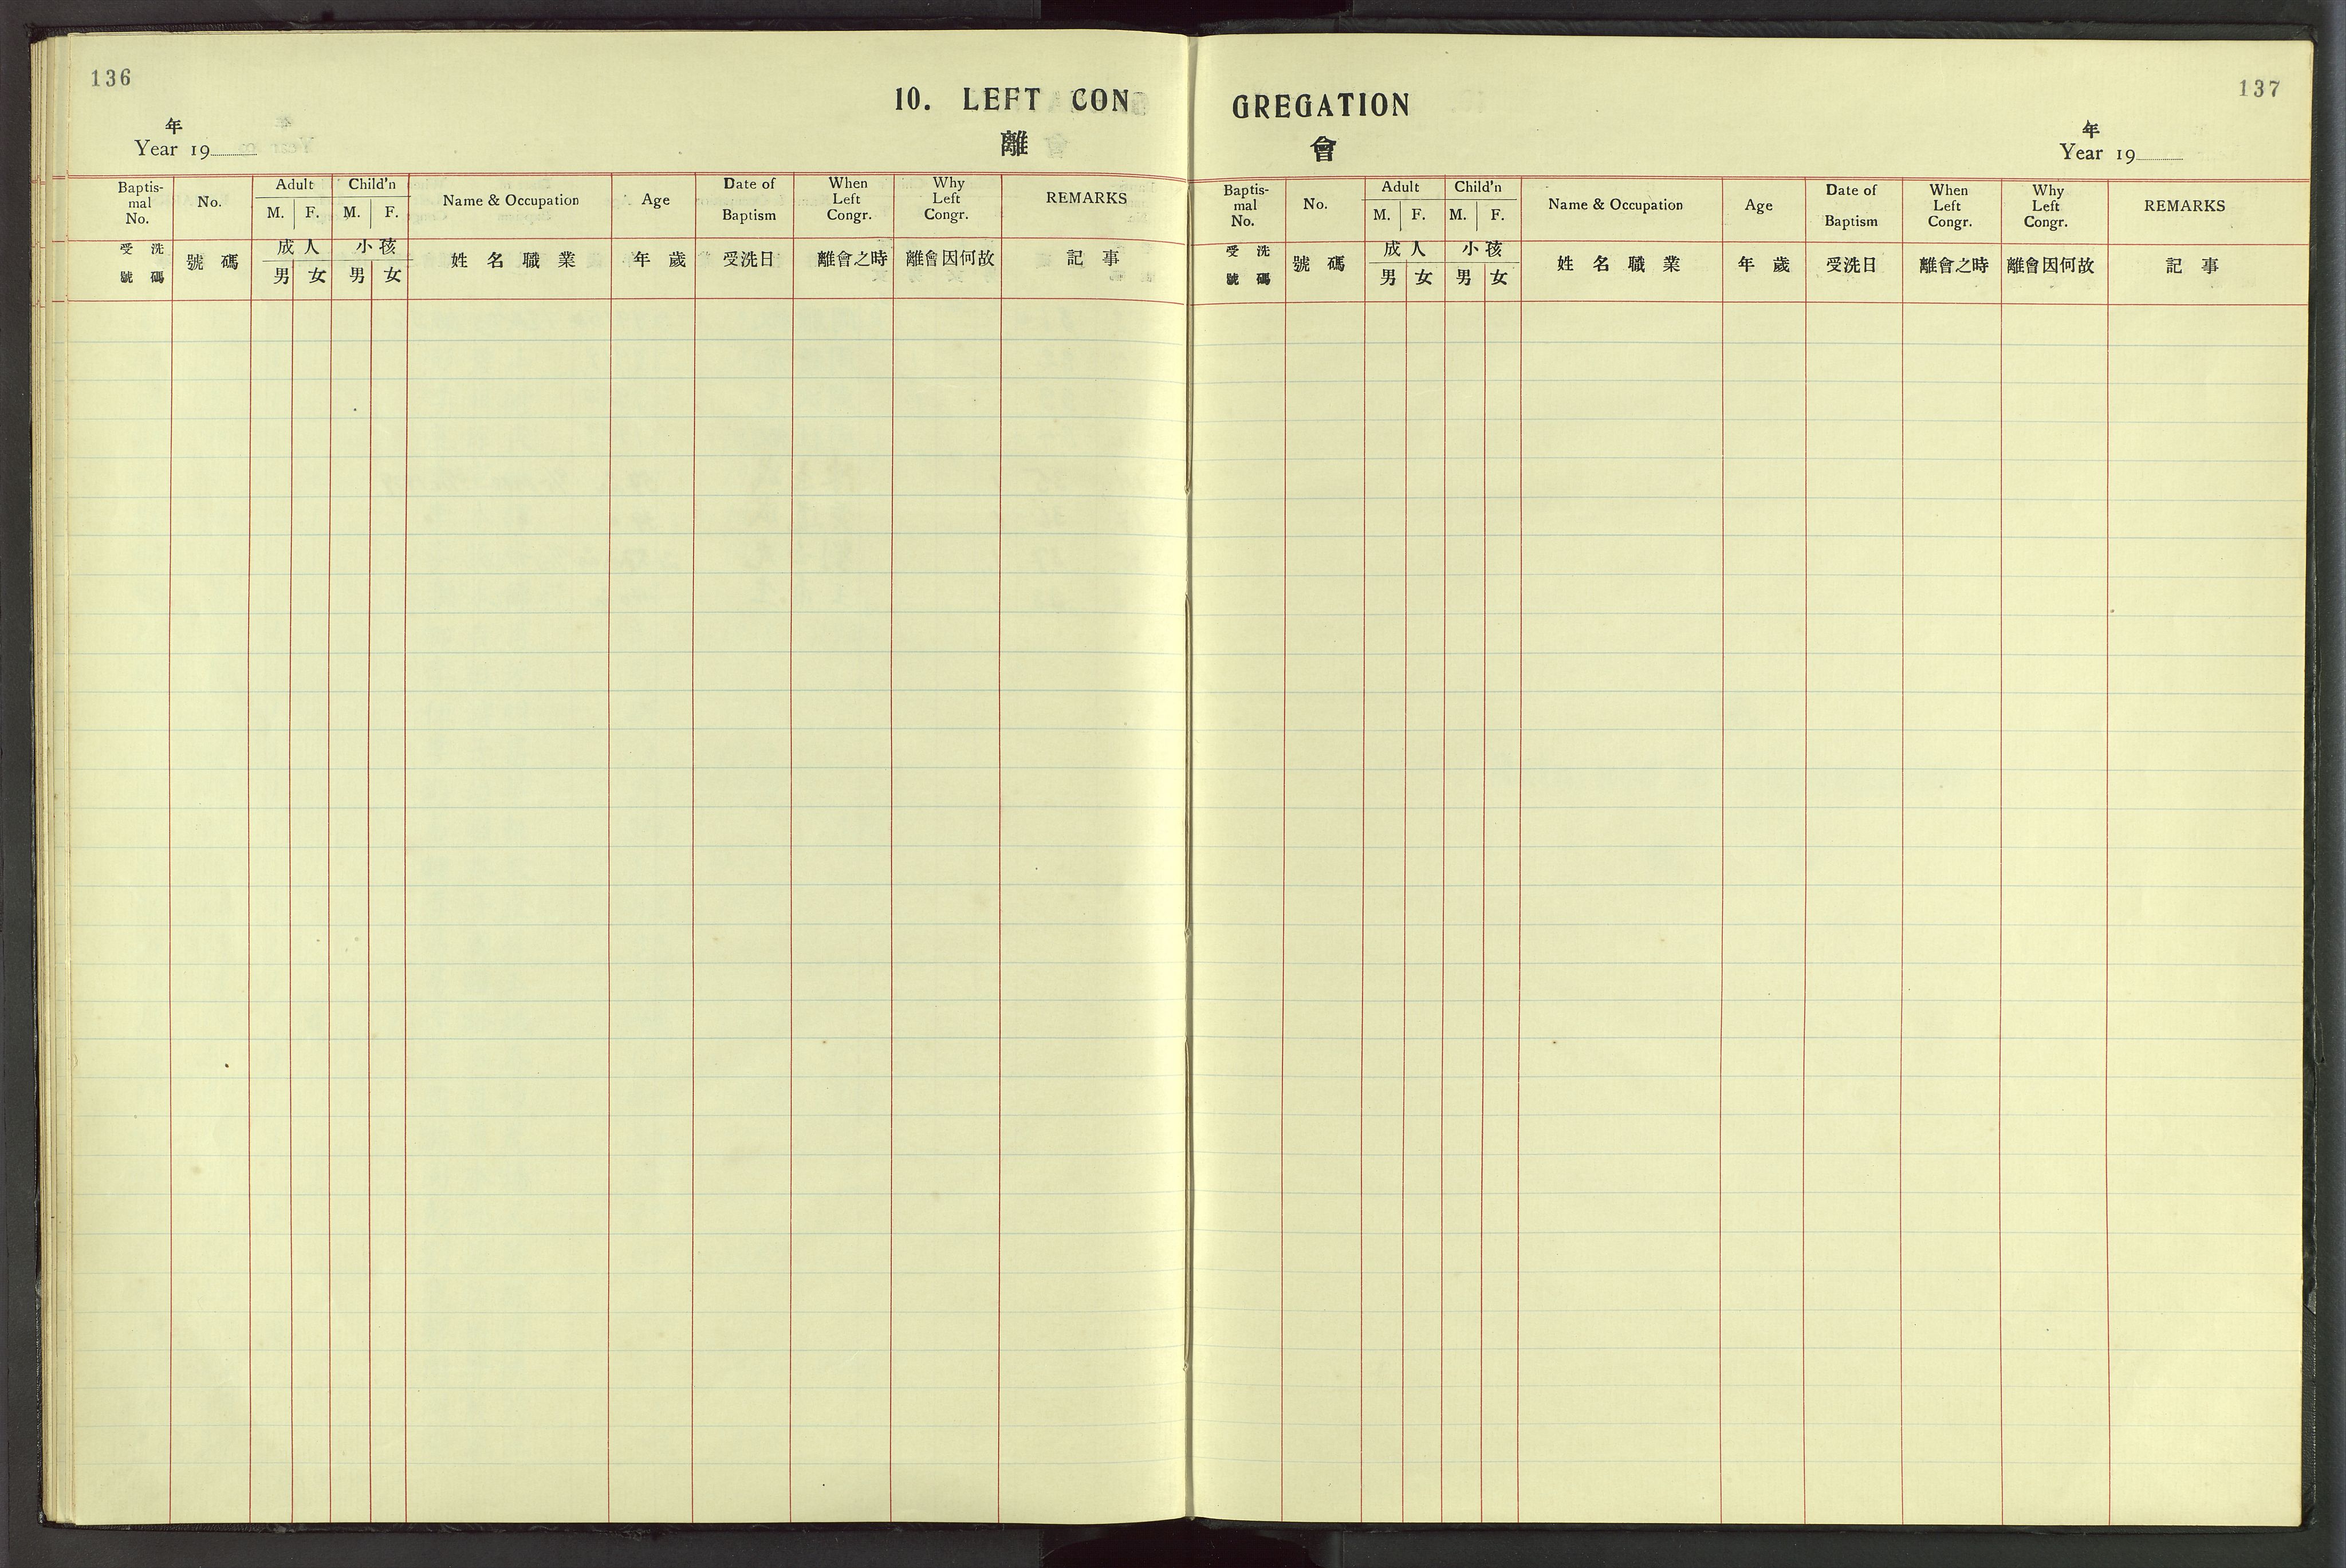 136
10. LEFT CON
離
年
Year 19
Baptis-
mal
No.
No.
Adult
M. F.
Child'n
M. F.
Name & Occupation
Age
Date of
Baptism
When
Left
Congr.
Why
Left
Congr.
REMARKS
受洗
號碼
號碼
成人
男 女
小孩
男 女
姓名職業
年歲
受洗日
離會之時
離會因何故
記事
137
GREGATION
會
年
Year 19
Baptis-
mal
No.
No.
Adult
M. F.
Child'n
M. F.
Name & Occupation
Age
Date of
Baptism
When
Left
Congr.
Why
Left
Congr.
REMARKS
受洗
號碼
號碼
成人
男 女
小孩
男 女
姓名職業
年歲
受洗日
離會之時
離會因何故
記事